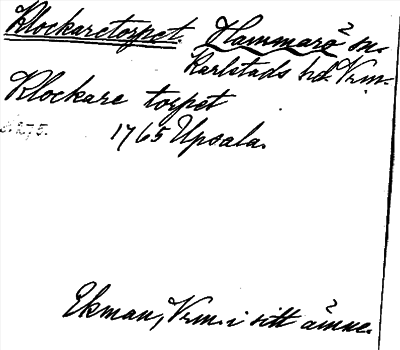 Klockaretorpet. Hammarö sn.
Karlstads hd. Vrm.
Klockare torpet
s. 275.
1765 Upsala.
Ekman, Vrm. i sitt ämne.